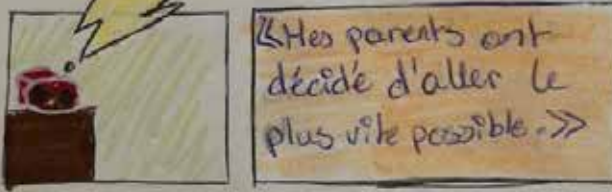 «Mes parents ont
décidé d'aller le
plus vite possible.»